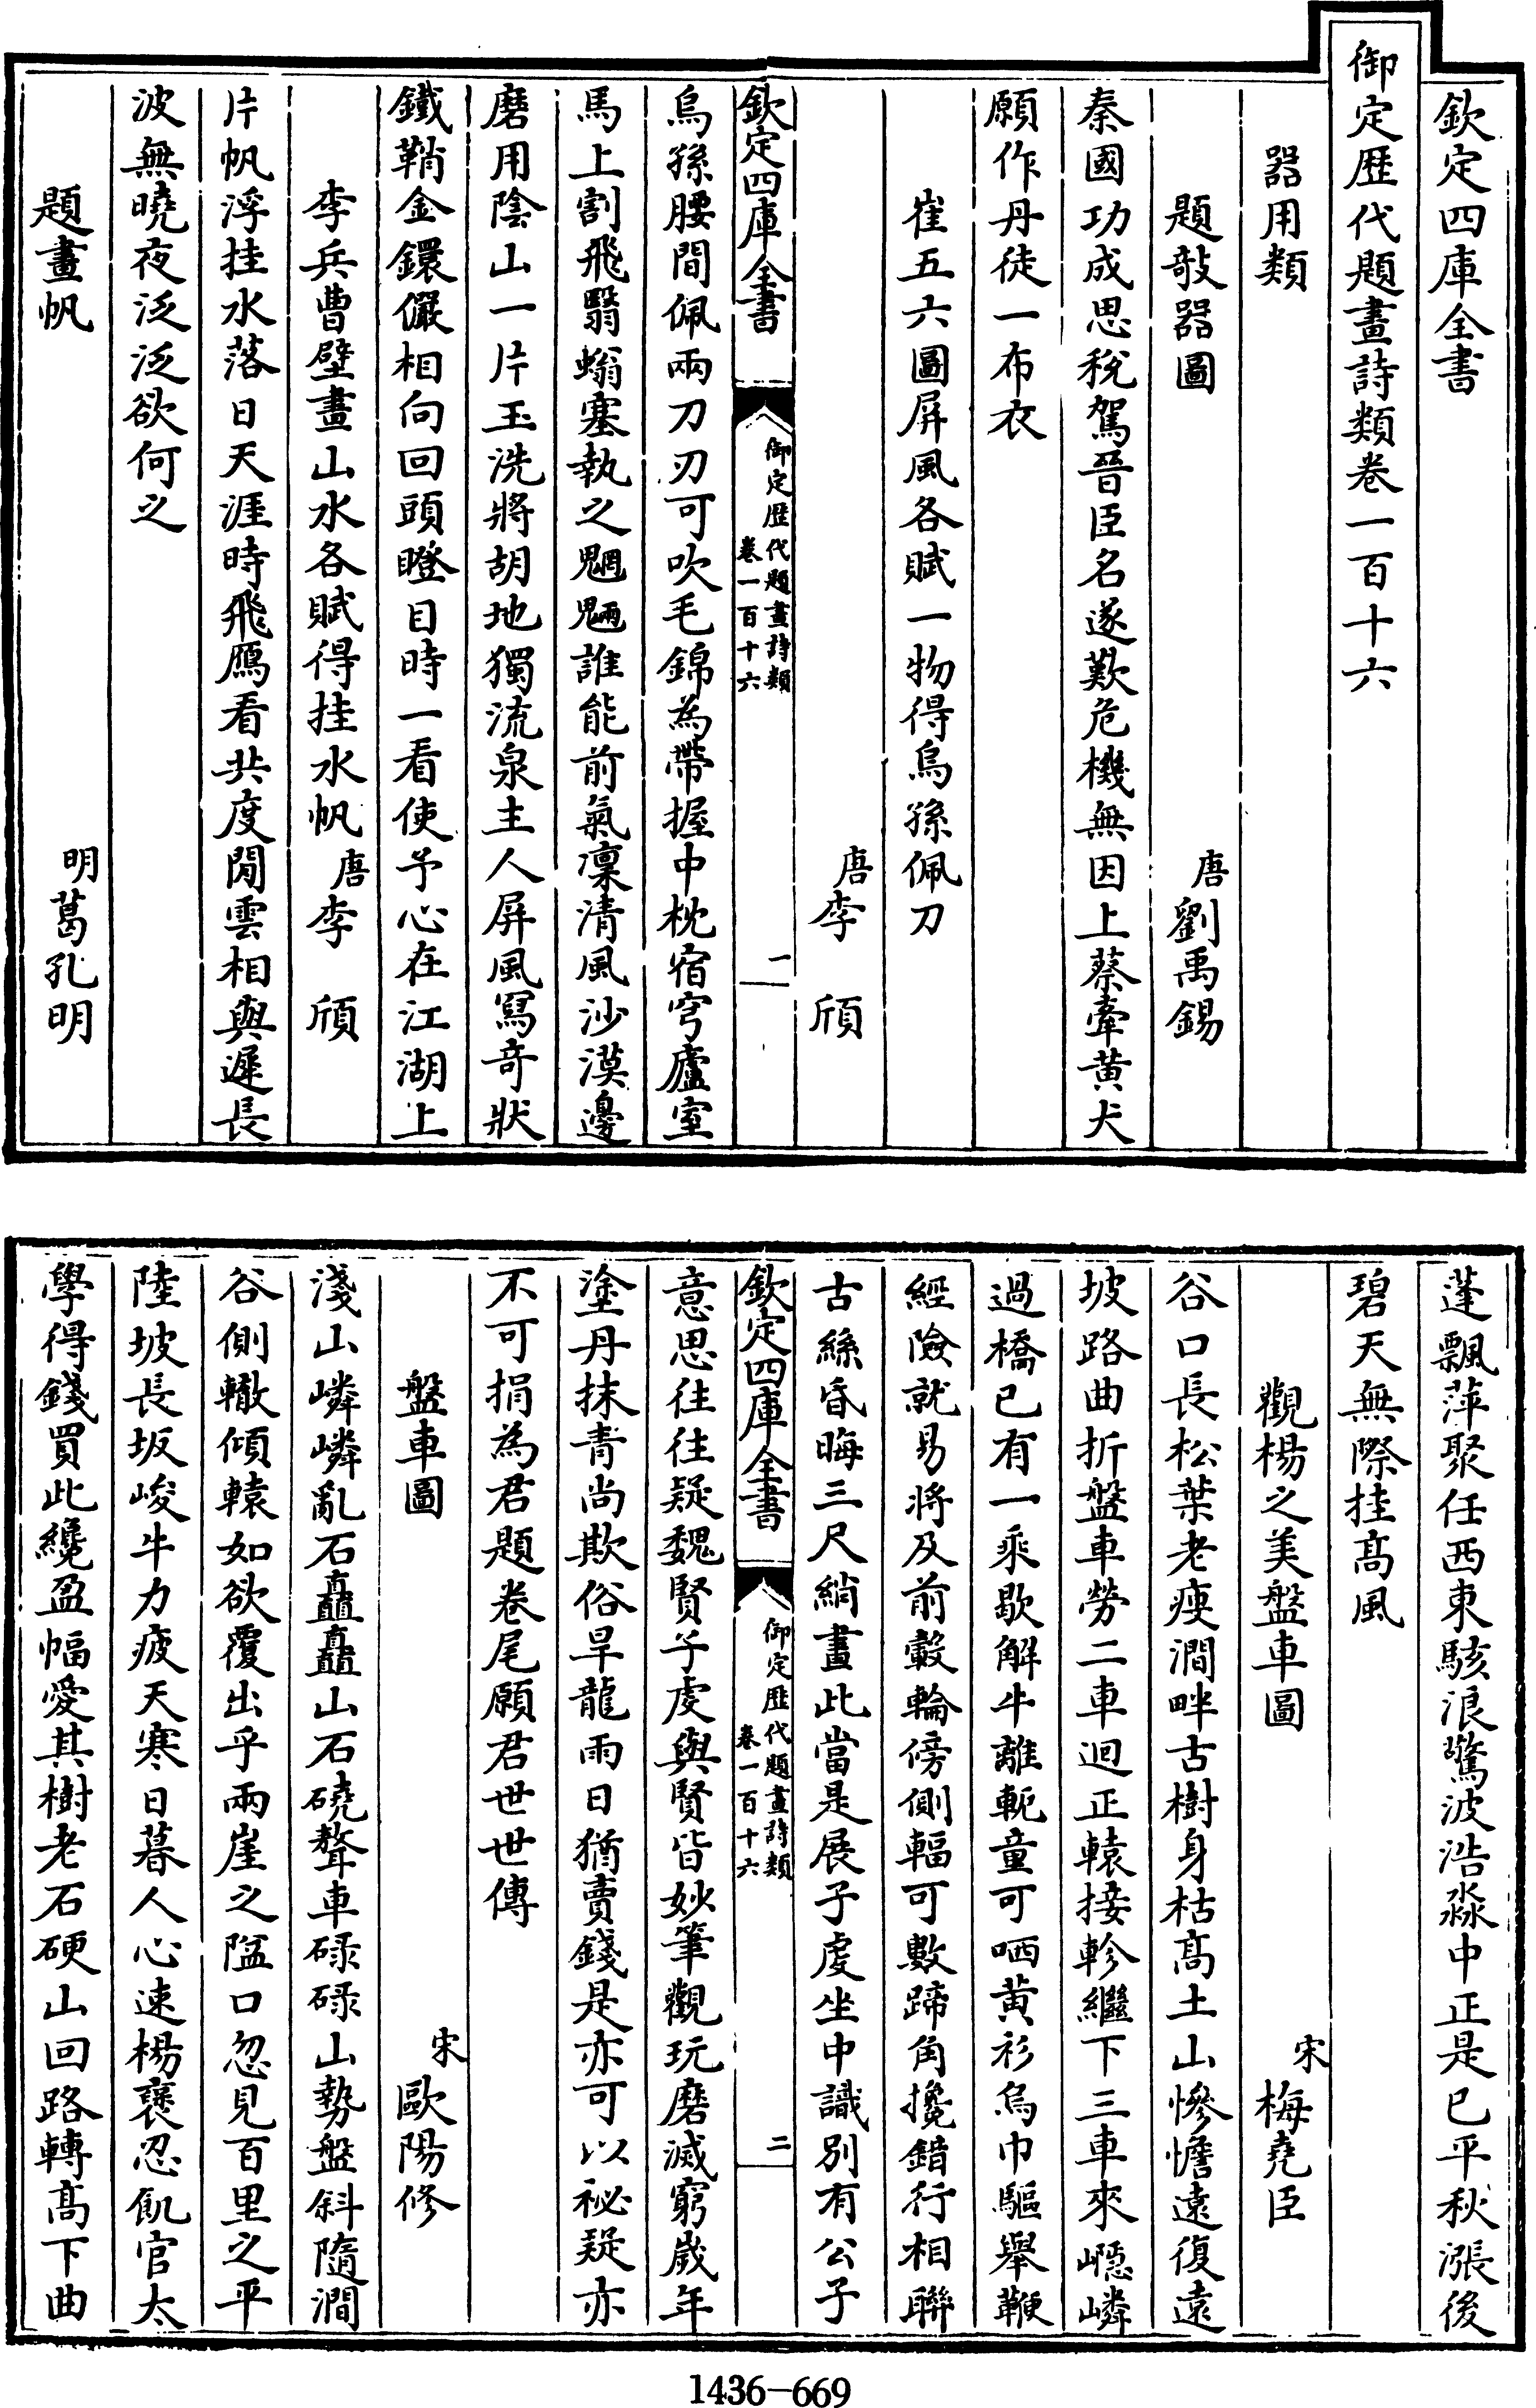 欽定四庫全書
御定歴代題畫詩類卷一百十六
器用類
題敧器圖
唐劉禹錫
秦國功成思稅駕晉臣名遂歎危機無因上蔡牽黄犬
願作丹徒一布衣
崔五六圖屏風各賦一物得烏孫佩刀
唐李頎
欽定四庫全書
御定歴代題畫詩類
卷一百十六
一
烏孫腰間佩兩刀刃可吹毛錦為帶握中枕宿穹廬室
馬上割飛翳螉塞執之魍魎誰能前氣凜清風沙漠邊
磨用陰山一片玉洗將胡地獨流泉主人屏風冩奇狀
鐵鞘金鐶儼相向回頭瞪目時一看使予心在江湖上
李兵曹壁畫山水各賦得挂水帆
唐李頎
片帆浮挂水落日天涯時飛鴈看共度閒雲相與遲長
波無曉夜泛泛欲何之
題畫帆
明葛孔明
蓬飄萍聚任西東駭浪驚波浩淼中正是已平秋漲後
碧天無際挂髙風
觀楊之美盤車圖
宋梅堯臣
谷口長松葉老瘦澗畔古樹身枯髙土山慘憺遠復遠
坡路曲折盤車勞二車迴正轅接軫繼下三車來嶾嶙
過橋已有一乘歇解牛離軛童可哂黄衫烏巾驅舉鞭
經險就易將及前轂輪傍側輻可數蹄角攙錯行相聯
古絲昏晦三尺綃畫此當是展子虔坐中識別有公子
欽定四庫全書
御定歴代題畫詩類
卷一百十六
二
意思往往疑魏賢子虔與賢皆妙筆觀玩磨滅窮歲年
塗丹抹青尚欺俗旱龍雨日猶賣錢是亦可以祕疑亦
不可捐為君題卷尾願君世世傳
盤車圖
宋歐陽修
淺山嶙嶙亂石矗矗山石磽聱車碌碌山勢盤斜隨澗
谷側轍傾轅如欲覆出乎兩崖之隘口忽見百里之平
陸坡長坂峻牛力疲天寒日暮人心速楊襃忍飢官太
學得錢買此纔盈幅愛其樹老石硬山回路轉髙下曲
1436-669